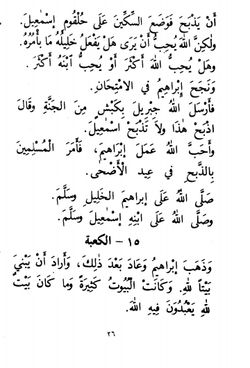 أَنْ يَذْبَحَ فَوَضَعَ السِّكِّينَ عَلَى حُلْقُومِ إِسْمٰعِيلَ.
وَلٰكِنَّ اللهَ يُحِبُّ أَنْ يَرَى هَلْ يَفْعَلُ خَلِيلُهُ مَا يَأْمُرُهُ.
وَهَلْ يُحِبُّ اللهَ أَكْثَرَ أَوْ يُحِبُّ ابْنَهُ أَكْثَرَ.
وَنَجَحَ إِبْرَاهِيمُ فِي الاِمْتِحَانِ.
فَأَرْسَلَ اللهُ جِبْرِيلَ بِكَبْشٍ مِنَ الجَنَّةِ وَقَالَ
اذْبَحْ هٰذَا وَلاَ تَذْبَحْ إِسْمٰعِيلَ.
وَأَحَبَّ اللهُ عَمَلَ إِبْرَاهِيمَ، فَأَمَرَ المُسْلِمِينَ
بِالذَّبْحِ فِي عِيدِ الأَضْحَى.
صَلَّى اللهُ عَلَى إِبراهِيمَ الخَلِيلِ وَسَلَّمَ.
وصَلَّى اللهُ عَلَى ابْنِهِ إِسْمٰعِيلَ وَسَلَّمَ.
١٥ - الكعبة
وَذَهَبَ إِبْرَاهِيمُ وَعَادَ بَعْدَ ذٰلِكَ، وَأَرَادَ أَنْ يَبْنِيَ
بَيْتاً لِلهِ. وَكَانَتْ الْبُيُوتُ كَثِيرَةً وَمَا كَانَ بَيْتٌ
لِلهِ يَعْبُدُونَ فِيهِ اللهَ.
٢٦